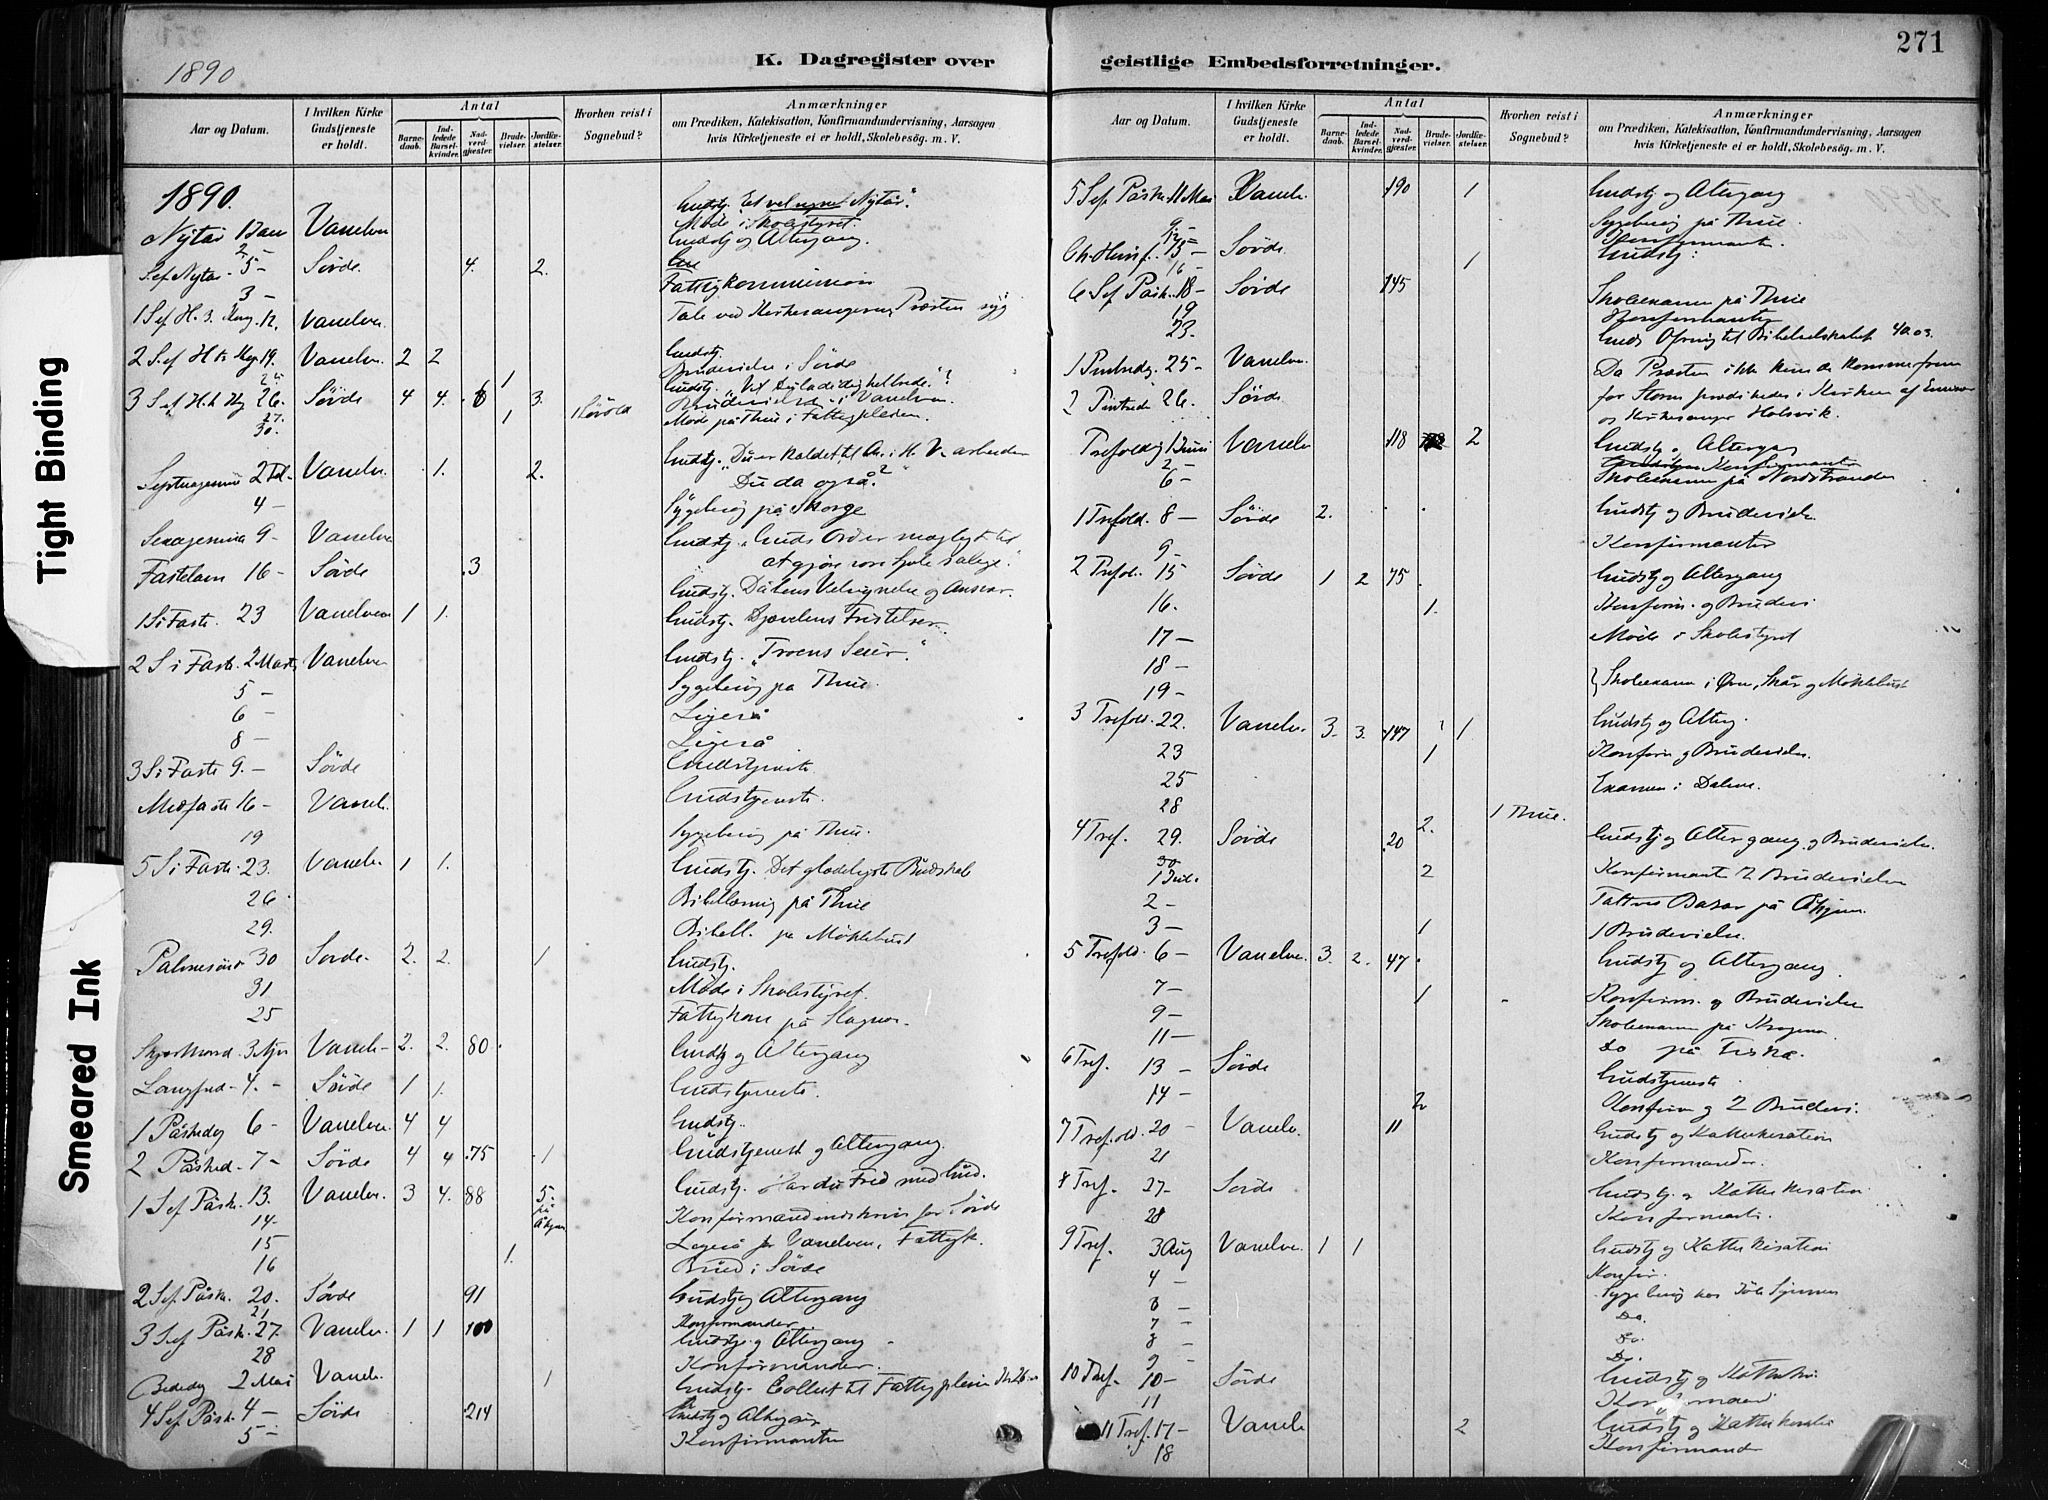 271
1890
K. Dagregister over
geistlige Embedsforretninger.
Aar og Datum.
I hvilken Kirke Gudstjeneste er holdt.
Antal
Barnedaab.
Indledede Barselkvinder.
Nadverdgjæster.
Brudevielser.
Jordfæstelser.
Hvorhen reist i Sognebud?
Anmærkninger
om Prædiken, Katekisation, Konfirmandundervisning, Aarsagen
hvis Kirketjeneste ei er holdt, Skolebesög. m. V.
1890.
Nytår 1 Jan Vanelven Gudstj. Et velsignet Nytår.
2 Møde i Skolestyret.
S. ef Nytår 5 - Sövde 4. 2. Gudstj og Altergang.
3 - Fattigkommission
1 S ef H. 3. Kong. 12. Vanelven Tale ved Kirkesangeren, Præsten syg
2 S ef H 3 Kg 19. Vanelv. 2 2 Gudstj.
25 1 Brudevielse i Sövde
3 S ef H. 3 Kg 26. Sövde 4 4. 3. Gudstj.
27. 1 Brudevielse i Vanelven.
30. Møde på Thue i Fattigplejen.
Septuagesima 2 Feb. Vanelv. 1. 2. Gudstj.
Du da også?
4 - Sygebesög på Skorge
Sexagesima 9 - Vanelven Gudstj. Guds Ord er mægtigt til
at gjöre vore Sjæle salige.
Fastelavn 16 - Sövde 3 Gudstj. Dåbens Velsignelse og Ansvar.
1 S i Faste 23 Vanelven 1 1. Gudstj. Djævelens Fristelser.
2 S i Faste 2 Marts Vanelven Gudstj. "Troens Seier."
5 - Sygebesög på Thue.
6 - Ligeså
8 - Ligeså
3 S i Faste 9. - Sövde Gudstjeneste
Midfaste 16 - Vanelv. Gudstjeneste.
19 Sygebesög på Thue.
5 S i Faste 23. Vanelv. 1 1. Gudstj. Det glædeligste Budskab
26 Bibellæsning på Thue
29. Bibell. på Möklebust
Palmesönd 30 Sovde 2. 2. 1 Gudstj.
31 Møde i Skolestyret.
25 Fattigkom på Hagnes.
Skjærthorsd. 3 Apr Vanelv 2. 2. 80 Gudstj og Altergang
Langfred 4. - Sövde 1 1. Gudstjeneste.
1 Påskedag 6 - Vanelven 4 4 Gudstj.
2 Påsked 7 - Sövde 4 4 75 1 Gudstjenest og Altergang.
1 S ef Påsk. 13. Vanelv. 3 4. 88 5. på Åhjem Gudstj. Har du Fred med Gud.
14. Konfirmandindskriv for Sövde
15 Ligeså for Vanelven, Fattigk.
16 1. Brud i Sövde
2 S ef. Påsk. 20. Sövde 91 Gudstj og Altergang
21 Konfirmander.
3 S ef Påsk. 27. Vanelv. 1 1 100 Gudstj. og Altergang
28 Konfirmander.
Bededag 2 Mai Vanelv. 1 Gudstj. Collect til Fattigplejen
4 S ef. Påsk. 4 - Sövde 214 Gudstj og Altergang
5 - Konfirmanter
Aar og Datum.
I hvilken Kirke Gudstjeneste er holdt.
Antal
Barnedaab.
Indledede Barselkvinder.
Nadverdgjæster.
Brudevielser.
Jordfæstelser.
Hvorhen reist i Sognebud?
Anmærkninger
om Prædiken, Katekisation, Konfirmandundervisning, Aarsagen
hvis Kirketjeneste ei er holdt, Skolebesög. m. V.
5 S ef Påske 11 Mai Vanelv 190 1 Gudstj og Altergang
9 - Sygebesög på Thue.
12 - Konfirmanter.
Ch. Himf. 15 - Sövde Gudstj:
16 - 1
6 S ef Påsk. 18 - Sövde 145
19 Skolexamen på Thue
23. Konfirmanter
1 Pintsedg. 25 - Vanelv. Guds Ofring til Bibelselskabet
2 Pintsedg 26. Sövde Da Præsten ikke kunde komme frem
for Storm prædikedes i Kirken af
og Kirkesanger Holsvik.
Trefoldig 1 Juni Vanelv 118 2 Gudstj, Altergang
2 - Konfirmanter
6 - Skolexamen på Nordstranden
1 Trefold. 8 - Sövde 2. Gudstj og Brudevielse
9 - Konfirmanter
2 Trefol. 15 Sövde 1 2 75 Gudstj og Altergang
16. 1. Konfirm. og Brudevi
17 - Møde i Skolestyret
18 -
19 - Skolexamen i Ørn, Skår og Möklebust
3 Trefold. 22. Vanelv. 3. 3. 147 1 Gudstj og Alterg.
23 1 Konfirm og Brudevielse.
25 Examen i Dalene.
28 1 Thue.
4 Tref. 29. Sövde 20 2. Gudstj og Altergang og Brudevielse.
30 2 Konfirmanter 2 Brudevielser
1 Juli.
2 - Basar på Åhjem
3 - 1 1 Brudevielse.
5 Trefold. 6 - Vanelven 3. 2. 47 Gudstj og Altergang.
7 - 1 Konfirm. og Brudevielse
9 - Skolexamen på Krogene
11 - Do på Fiskå.
6 Tref. 13 - Sövde Gudstjeneste
14 - 2 Konfirm og 2 Brudevi.
7 Trefold 20 - Vanelv. 11 Gudstj og Kathekisation
21 Konfirmander.
8 Tref. 27 - Sovde Gudstj. og Kathekisation
28 Konfirmant.
9 Tref. 3 Aug Vanelven 1 1 Gudstj og Kathekisation
4 - Konfir.
6 - Sygebesög hos
7 - Do.
8 - Do.
9 - Do.
10 Tref. 10 - Sövde Gudstj og Katheki
11 Konfirmand
11 Tref. 17 - Vanelv 2 Gudstj og Kathekisatio
18 Konfirmand
Tight Binding
Smeared Ink